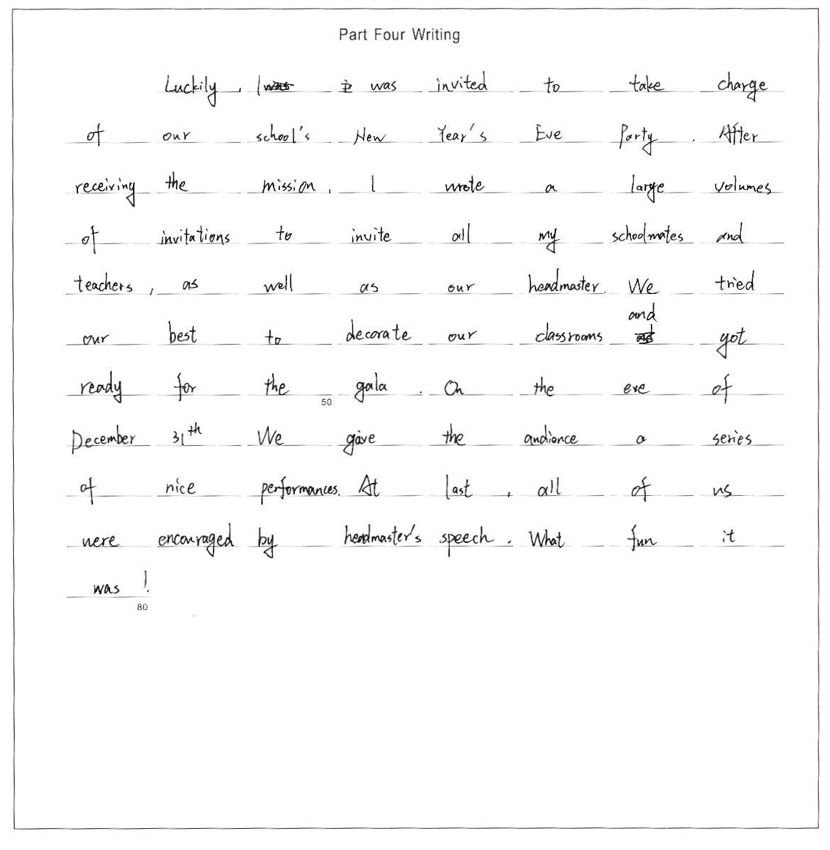 Part Four Writing
Luckily, I was invited to take charge
of our school's New Year's Eve Party. After
receiving the mission, I wrote a large volumes
of invitations to invite all my schoolmates and
teachers, as well as our headmaster. We tried
our best to decorate our classrooms and got
ready for the gala. On the eve of
50
December 31th We gave the audience a series
of nice performances. At last, all of us
were encouraged by headmaster's speech. What fun it
was!
80